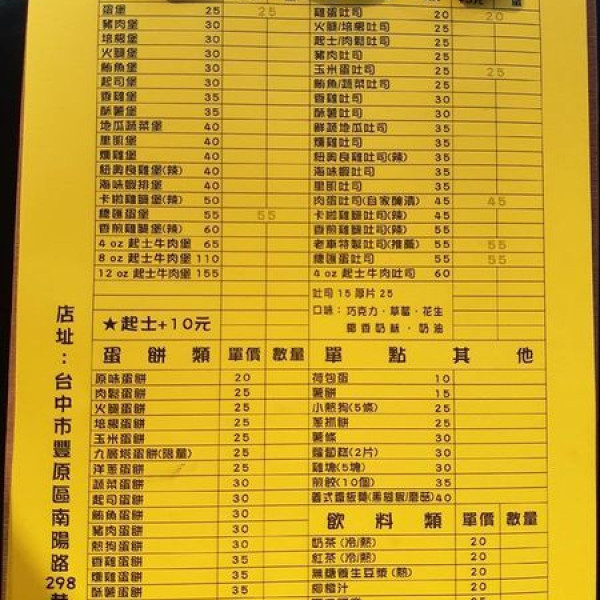 蛋堡 25 25
豬肉堡 30
培根堡 30
火腿堡 30
鮪魚堡 30
起司堡 30
香雞堡 35
酥薯堡 35
地瓜蔬菜堡 40
里肌堡 40
燻雞堡 40
紐奧良雞堡(辣) 40
海味蝦排堡 40
卡啦雞腿堡(辣) 50
總匯蛋堡 55 55
香煎雞腿堡(辣) 60
4 oz 起士牛肉堡 65
8 oz 起士牛肉堡 110
12 oz 起士牛肉堡 155
★起士+10元
雞蛋吐司 20 20
火腿/培根吐司 25
起士/肉鬆吐司 25
豬肉吐司 25
玉米蛋吐司 25 25
鮪魚/蔬菜吐司 25
香雞吐司 30
酥薯吐司 30
鮮蔬地瓜吐司 35
燻雞吐司 35
紐奧良雞吐司(辣) 35
海味蝦吐司 35
里肌吐司 35
肉蛋吐司(自家醃漬) 45 45
卡啦雞腿吐司(辣) 45
香煎雞腿吐司(辣) 55
老車特製吐司(推薦) 55 55
總匯蛋吐司 55 55
4 oz 起士牛肉吐司 60
吐司 15 厚片 25
口味：巧克力・草莓・花生
椰香奶酥・奶油
蛋餅類 單價 數量
原味蛋餅 20
肉鬆蛋餅 25
火腿蛋餅 25
培根蛋餅 25
玉米蛋餅 25
九層塔蛋餅(限量) 25
洋蔥蛋餅 25
蔬菜蛋餅 30
起司蛋餅 30
鮪魚蛋餅 30
豬肉蛋餅 30
熱狗蛋餅 30
香雞蛋餅 35
燻雞蛋餅 35
酥薯蛋餅 35
單點其他
荷包蛋 10
薯餅 15
小熱狗(5條) 25
蔥抓餅 25
薯條 30
蘿蔔糕(2片) 30
雞塊(5塊) 30
煎餃(10個) 35
義式鐵板麵(黑胡椒/蘑菇) 40
飲料類 單價 數量
奶茶(冷/熱) 20
紅茶(冷/熱) 20
無糖養生豆漿(熱) 20
柳橙汁 20
店址：台中市豐原區南陽路298